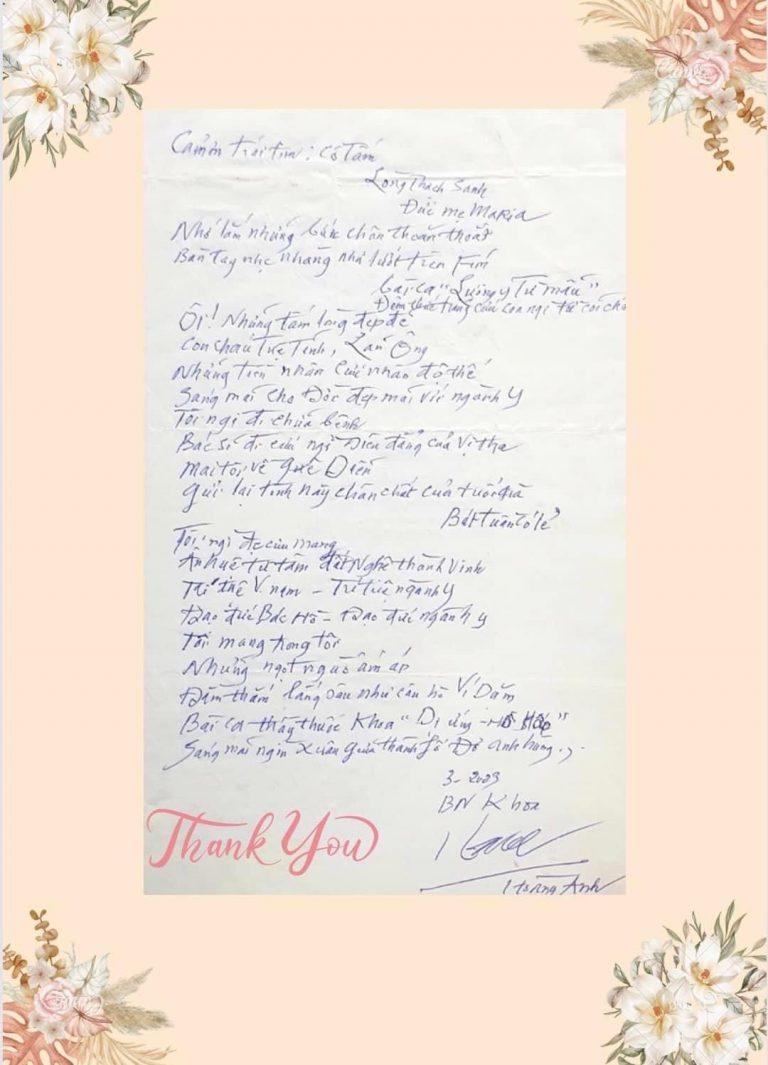 Cảm ơn trái tim: Cô Tấm
Lòng Thạch Sanh
Đức mẹ MaRia
Nhớ lắm những bước chân thoăn thoắt
Bàn tay nhẹ nhàng như lướt trên Fím
bài ca "Lương y Từ mẫu"
Ôi! Những tấm lòng đẹp đẽ
Con cháu Tuệ Tĩnh, Lãn Ông
Những tiền nhân đô thế
Sáng mãi cho Đời đẹp mãi với ngành Y
Tôi ngi đi chữa bệnh
Bác sĩ đi cứu ngi
Mai tôi về quê Diễn
Gửi lại tình này chân chất của tuổi già
Bát tuần có lẻ
Tôi ngi đc cưu mang
Ân huệ từ tâm đất Nghệ thành Vinh
V. nam - Trí tuệ ngành Y
Đạo đức Bác Hồ - Đạo đức ngành y
Tôi mang trong tôi
Những ngọt ngào ấm áp
Đằm thắm lắng sâu như câu hò Ví Dặm
Bài ca thầy thuốc Khoa "Dị ứng - Hô Hấp"
Sáng mãi ngìn Xuân giữa thành fố Đỏ anh hùng...
3-2023
BN Khoa
Hoàng Anh
Thank You